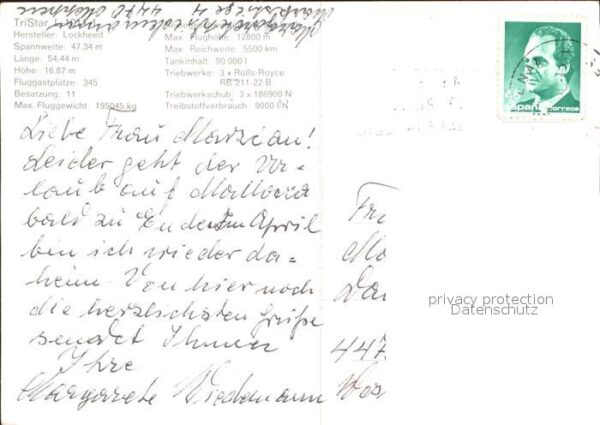 TriStar
Hersteller Lockheed
Spannweite: 47,34 m
Länge: 54,44 m
Höhe: 16,87 m
Fluggastplätze: 345
Besatzung: 11
Max. Fluggewicht: 195045 kg
Max. Flughöhe: 12800 m
Max. Reichweite: 5500 km
Tankinhalt: 90 000 l
Triebwerke: 3 x Rolls-Royce
RB 211-22 B
Triebwerkschub: 3 x 186900 N
Treibstoffverbrauch: 9000 l/h
4470 Meppen
España correos
Liebe Frau Marzian!
Leider geht der Ur-
laub auf Mallorca
bald zu Ende. Im April
bin ich wieder da-
heim. Von hier noch
die herzlichsten Grüße
sendet Ihnen
Ihre
Margarete Wiedemann
Fr
Ma
447
privacy protection
Datenschutz